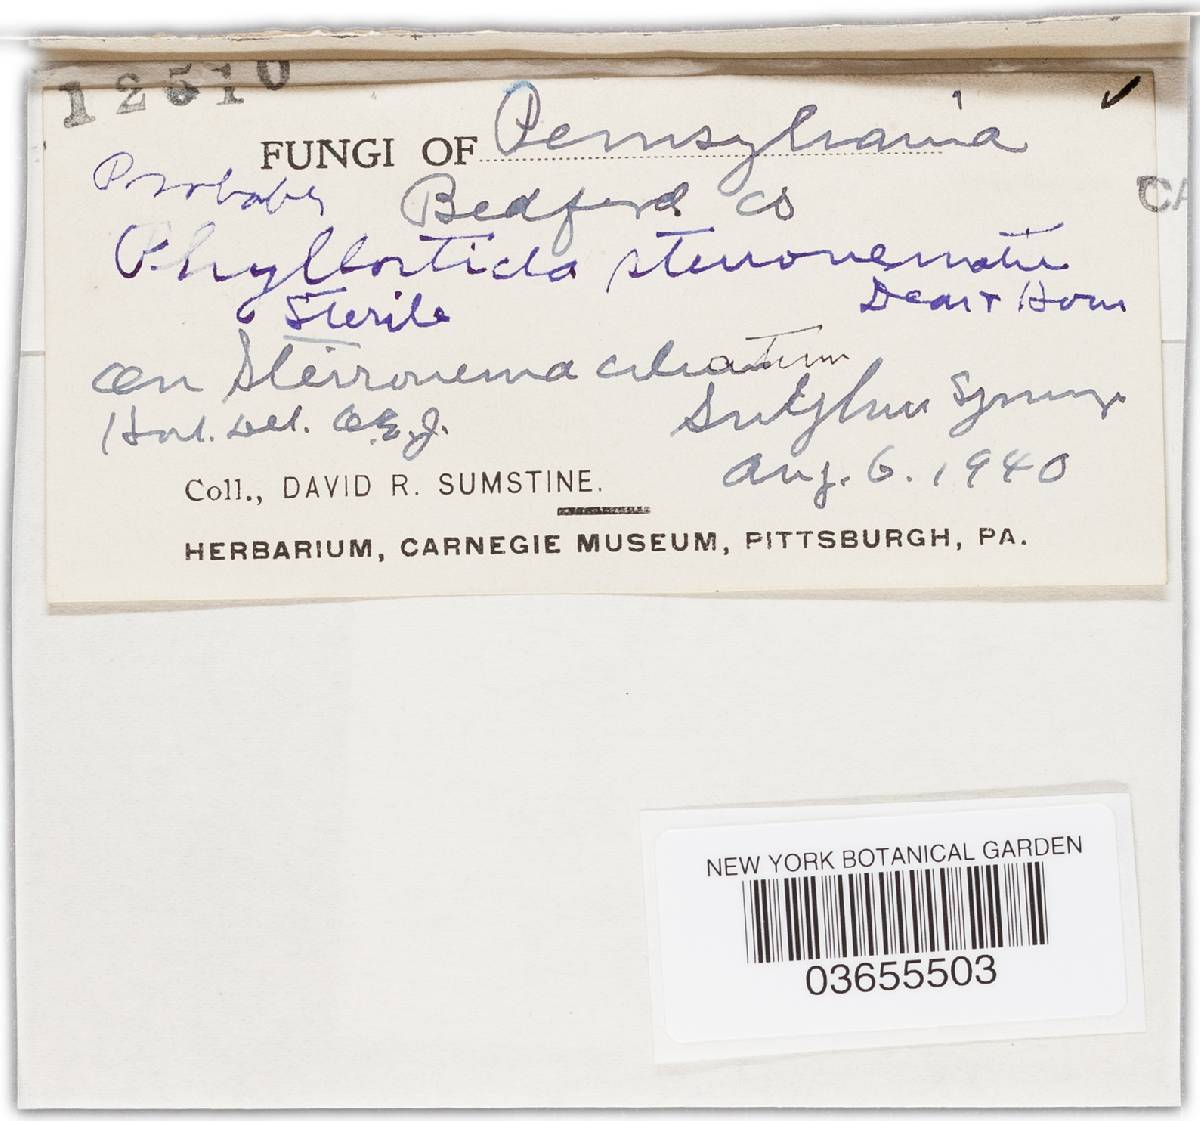 12510
FUNGI OF Pennsylvania
Probably Bedford Co
CA
Phyllosticta steironematis
Sterile Dear + Hous
on Steironema ciliatum
Host. Det. O.E.J. Sulphur Springs
Aug. 6. 1940
Coll., DAVID R. SUMSTINE.
HERBARIUM, CARNEGIE MUSEUM, PITTSBURGH, PA.
NEW YORK BOTANICAL GARDEN
03655503